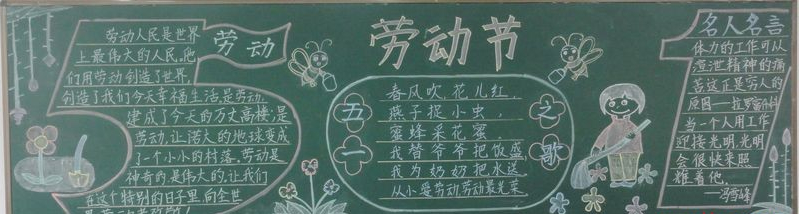 劳动人民是世界
上最伟大的人民,他
们用劳动创造了世界,
创造了我们今天幸福生活,是劳动,
建成了今天的万丈高楼;是
劳动,让诺大的地球变成
了一个小小的村落,劳动是
神奇的是伟大的,让我们
在这个特别的日子里,向全世
劳动
劳动节
五一
之歌
春风吹,花儿红,
燕子捉小虫,
蜜蜂采花蜜,
我替爷爷把饭盛,
我为奶奶把水送,
从小爱劳动劳动最光荣
名人名言
体力的工作可以
渲泄精神的痛
苦这正是穷人的
原因——拉罗富什科
当一个人用工作
迎接光明,光明
会很快来照
耀着他
——冯雪峰